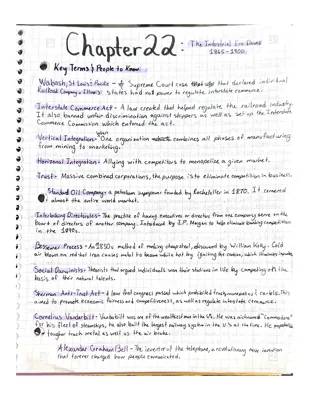 Chapter 22: The Industrial Era Dawns
1865-1900
Key Terms & People to Know:
Wabash, St. Louis & Pacific - A Supreme Court case that declared individual
Railroad Company v. Illinois: states had not power to regulate interstate commerce.
Interstate Commerce Act - A law created that helped regulate the railroad industry.
It also banned under discrimination against shippers as well as set up the Interstate
Commerce Commission which enforced the act.
Vertical Integration - When One organization combines all phases of manufacturing
from mining to marketing.
Horizontal Integration: Allying with competitors to monopolize a given market.
Trust - Massive combined corporations, the purpose is to eliminate competition in business.
Standard Oil Company - a petroleum superpower founded by Rockefeller in 1870. It cornered
almost the entire world market.
Interlocking Directorates - The practice of having executives or directors from one company serve on the
Board of directors of another company. Introduced by J.P. Morgan to help eliminate banking competition
in the 1890s.
Bessemer Process - An 1850s method of making cheap steel, discovered by William Kelly. Cold
air blown on red hot iron causes metal to become white hot by igniting the carbon, which eliminates impurities
Social Darwinists - Theorists that argued individuals won their stations in life by competing on the
basis of their natural talents.
Sherman Anti-Trust Act - A law that congress passed which prohibited trusts, monopolies & cartels. This
aimed to promote economic fairness and competitiveness, as well as regulate interstate commerce.
Cornelius Vanderbilt - Vanderbilt was one of the wealthiest men in the US. He was nicknamed "Commodore"
for his fleet of steamships, he also built the largest railway system in the U.S at the time. He
tougher track metal as well as the air brake.
Alexander Graham Bell - The inventor of the telephone, a revolutionary new invention
that forever changed how people communicated.